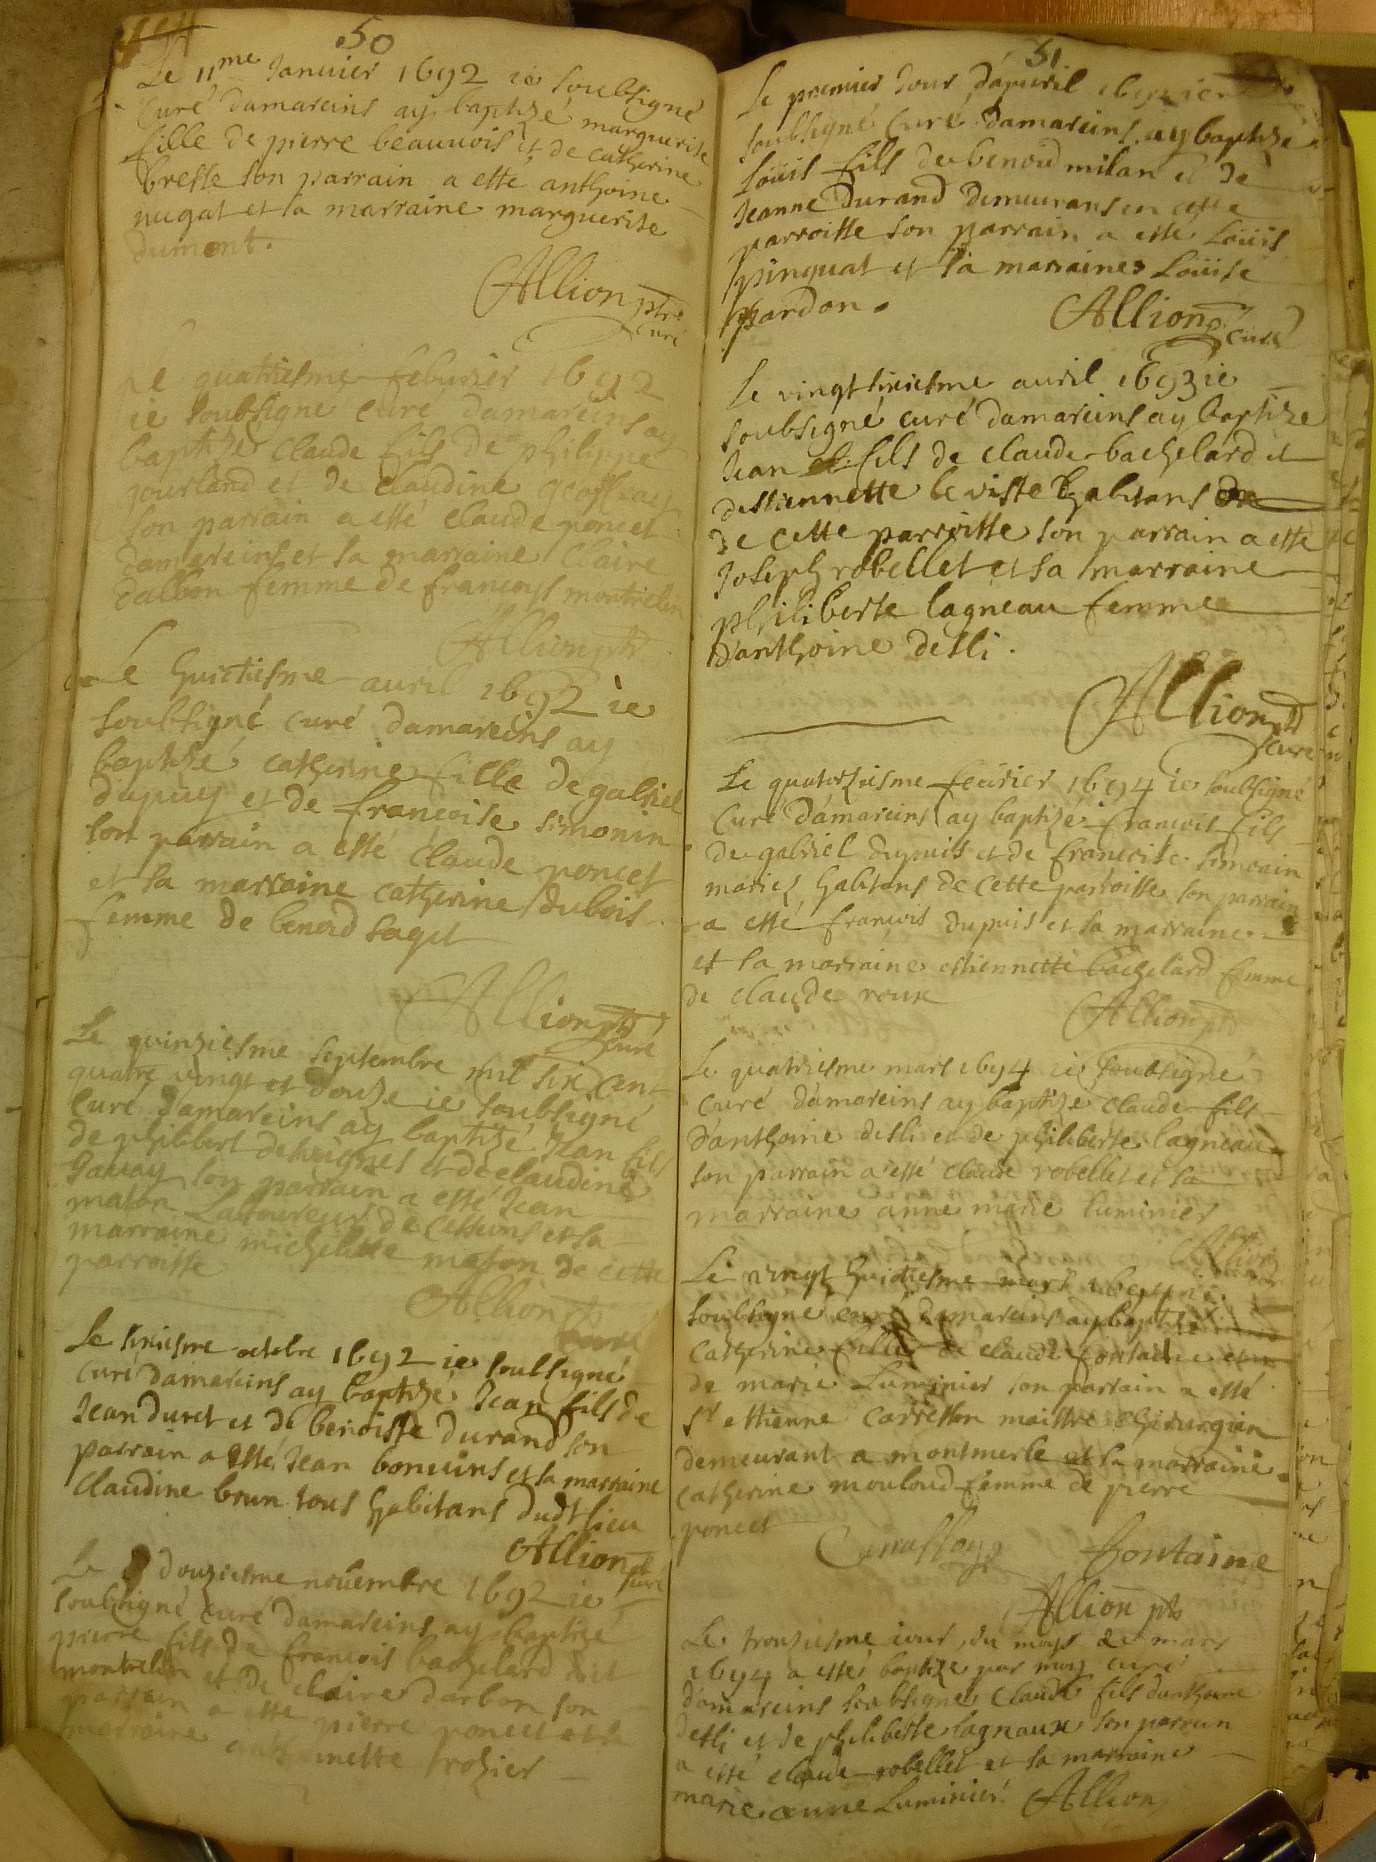 50
Le 11me Januier 1692 ie soubsigné
Curé damareins ay baptizé marguerite
fille de pierre beauuois et de catherine
bresse son parrain a esté anthoine
nugat et sa marraine marguerite
dumont.
Allion ptre
curé
Le quatriesme feburier 1692
ie soubsigne curé damareins ay
baptizé Claude fils de philippe
gourland et de claudine geoffray
son parrain a esté claude poncet
damereins et sa marraine Claire
dalbon femme de francoys montrelin
Allion ptr
Le huictiesme auril 1692 ie
soubsigné curé damareins ay
baptizé catherine fille de gabriel
dupuy et de francoise simonin
son parrain a esté claude poncet
et sa marraine catherine dubois
femme de benoid saget
Allion ptr
curé
Le quinziesme septembre mil six cent
quatre vingt et douze ie soubsigné
Curé damareins ay baptizé Jean fils
de philibert deuignes et de claudine
gauay son parrain a esté Jean
maton Laboureur de Cessins et sa
marraine michelette maton de cette
parroisse
Allion ptr
curé
Le sixiesme octobre 1692 ie soubsigné
curé damareins ay baptizé Jean fils de
Jean duret et de benoiste durand son
parrain a esté Jean bonuins et sa marraine
Claudine brun tous habitans dudt lieu
Allion ptr
curé
Le douziesme nouembre 1692 ie
soubsigné curé damareins ay baptizé
pierre fils de francois bachelard dict
montrelin et de claire darbon son
parrain a esté pierre poncet et sa
marraine anthoinette rozier
51
Le premier Jour dapuril 1693 ie
soubsigné Curé damareins ay baptize
Loüis fils de benoid milan et de
Jeanne durand demeurans en cette
parroisse son parrain a esté Loüis
pinquat et sa marraine Loüise
pardon.
Allion p
curé
Le vingt sixiesme auril 1693 ie
soubsigné curé damareins ay baptize
Jean fils de claude bachelard et
destiennette leviste habitans
de cette parroisse son parrain a esté
Joseph robellet et sa marraine
philiberte lagneau femme
d'anthoine desli.
Allion ptr
curé
Le quatorziesme feurier 1694 ie soubsigné
Curé damareins ay baptizé francois fils
de gabriel dupuis et de francoise simonin
mariez habitans de cette parroisse son parrain
a esté francois dupuis et sa marraine
et sa marraine estiennette bachelard femme
de claude roux
Allion ptr
Le quatriesme mars 1694 ie soubsigné
curé damareins ay baptize claude fils
d'anthoine desli et de philiberte lagneau
son parrain a esté claude robellet et sa
marraine anne marie luminier
Allion
Le vingt huictiesme mars ie
soubsigne curé damareins ay baptizé
Catherine fille de claude fontaine et
de marie Luminier son parrain a esté
Sr estienne carretton maistre chirurgien
demeurant a montmerle et sa marraine
catherine mouloud femme de pierre
poncet
fontaine
Allion ptr
Le trouziesme iour du moys de mars
1694 a esté baptize par moy curé
damareins soubsigne Claude fils danthoine
desli et de philiberte lagnaux son parrain
a esté claude robellet et sa marraine
marie anne Luminier Allion